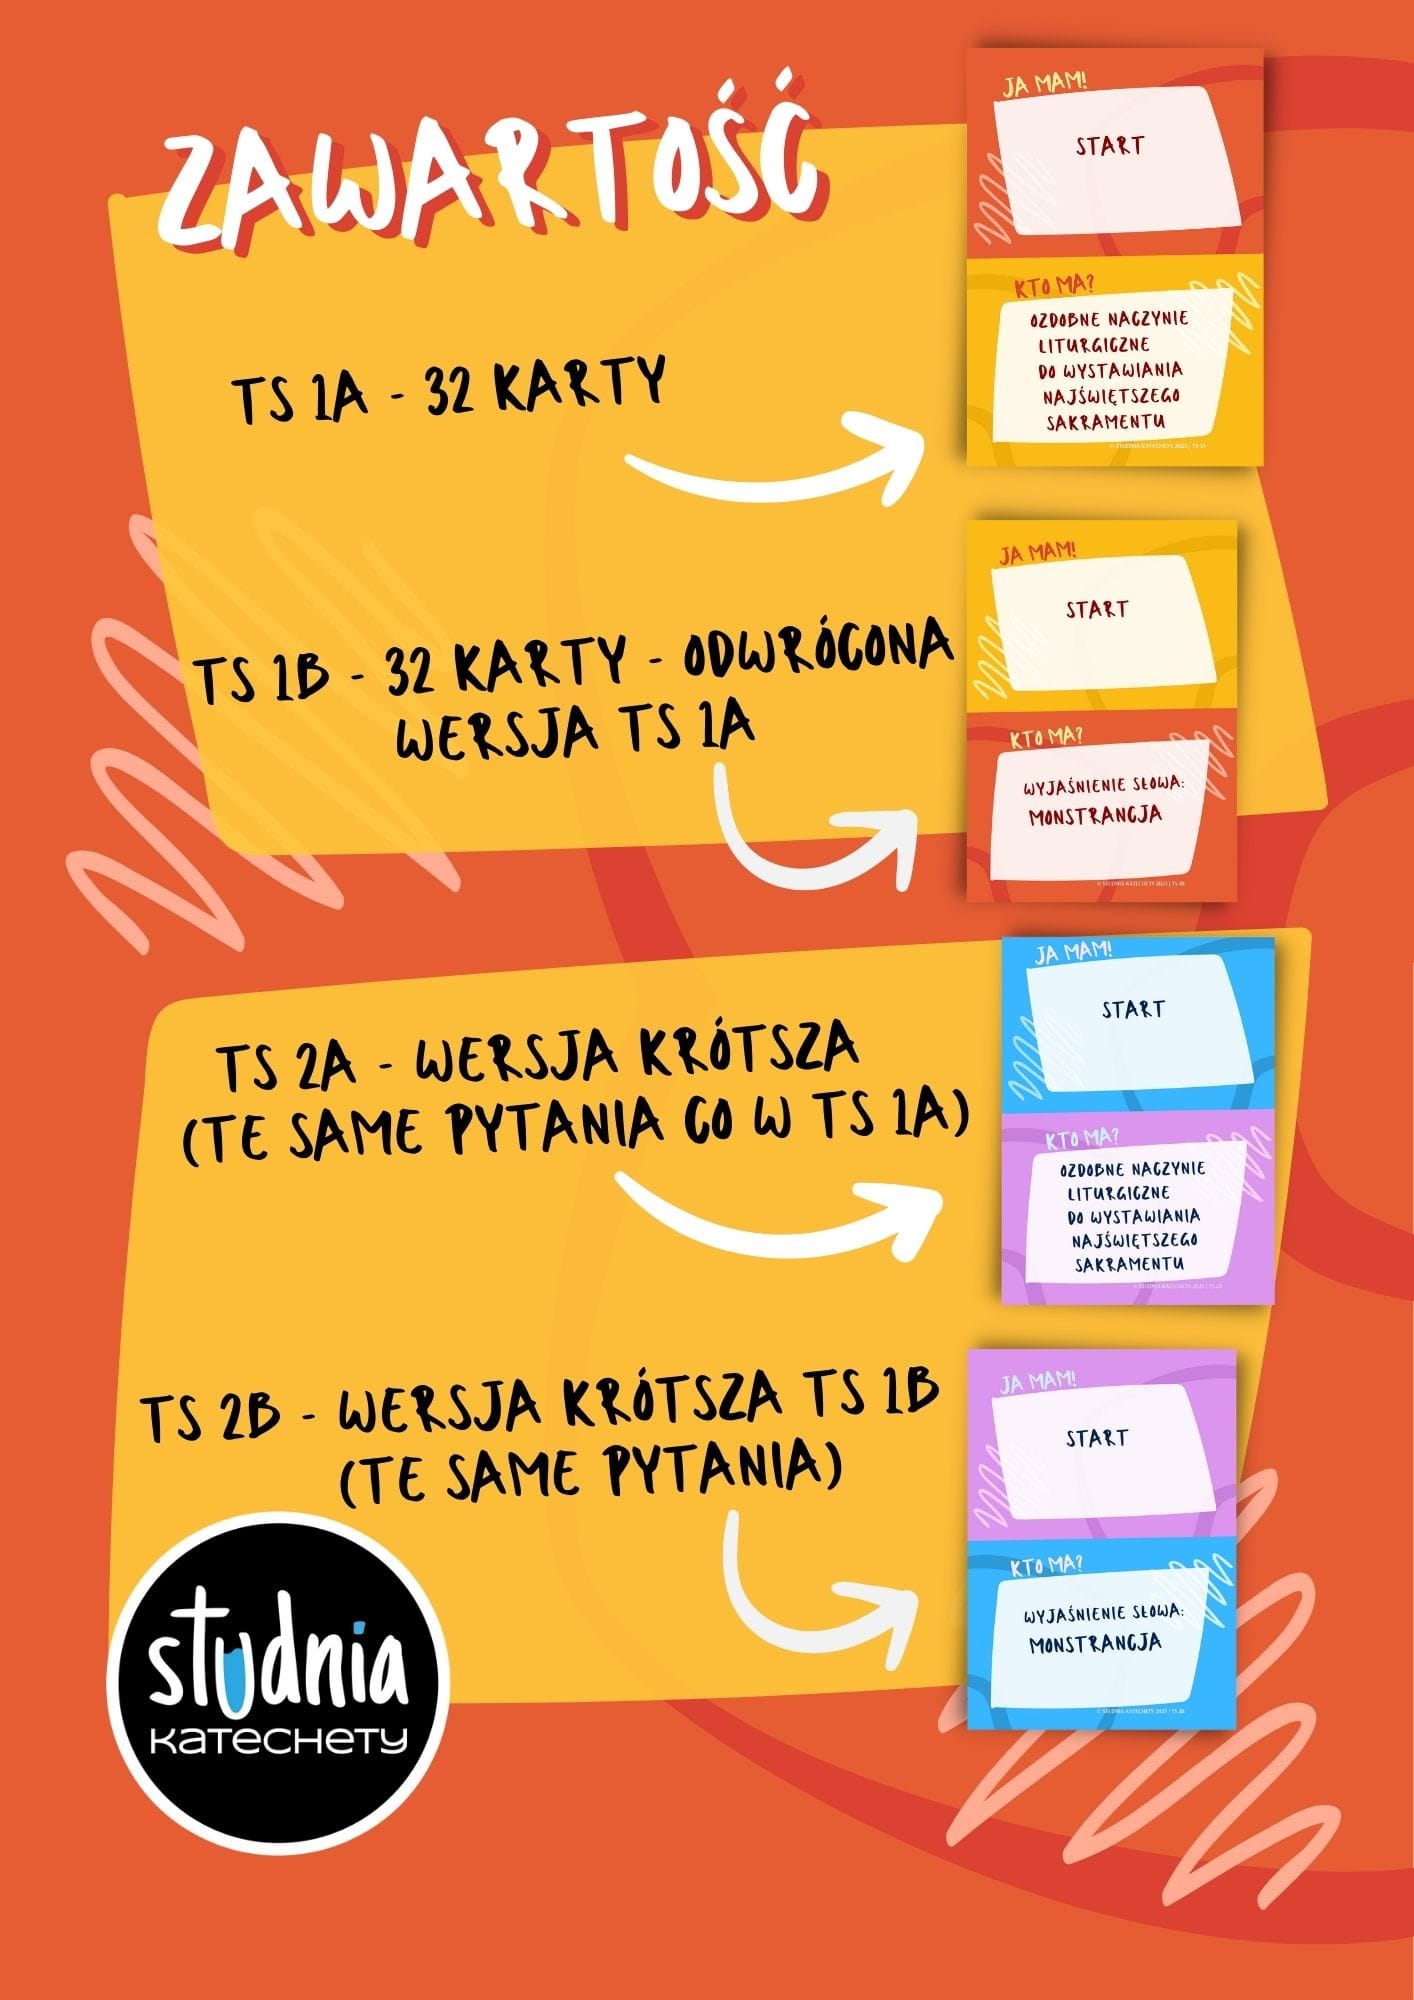 ZAWARTOŚĆ
TS 1A - 32 KARTY
JA MAM!
START
KTO MA?
OZDOBNE NACZYNIE
LITURGICZNE
DO WYSTAWIANIA
NAJŚWIĘTSZEGO
SAKRAMENTU
© STUDNIA KATECHETY 2023 | TS 1A
TS 1B - 32 KARTY - ODWRÓCONA
WERSJA TS 1A
JA MAM!
START
KTO MA?
WYJAŚNIENIE SŁOWA:
MONSTRANCJA
© STUDNIA KATECHETY 2023 | TS 1B
TS 2A - WERSJA KRÓTSZA
(TE SAME PYTANIA CO W TS 1A)
JA MAM!
START
KTO MA?
OZDOBNE NACZYNIE
LITURGICZNE
DO WYSTAWIANIA
NAJŚWIĘTSZEGO
SAKRAMENTU
© STUDNIA KATECHETY 2023 | TS 2A
TS 2B - WERSJA KRÓTSZA TS 1B
(TE SAME PYTANIA)
JA MAM!
START
KTO MA?
WYJAŚNIENIE SŁOWA:
MONSTRANCJA
© STUDNIA KATECHETY 2023 | TS 2B
studnia
KATECHETY